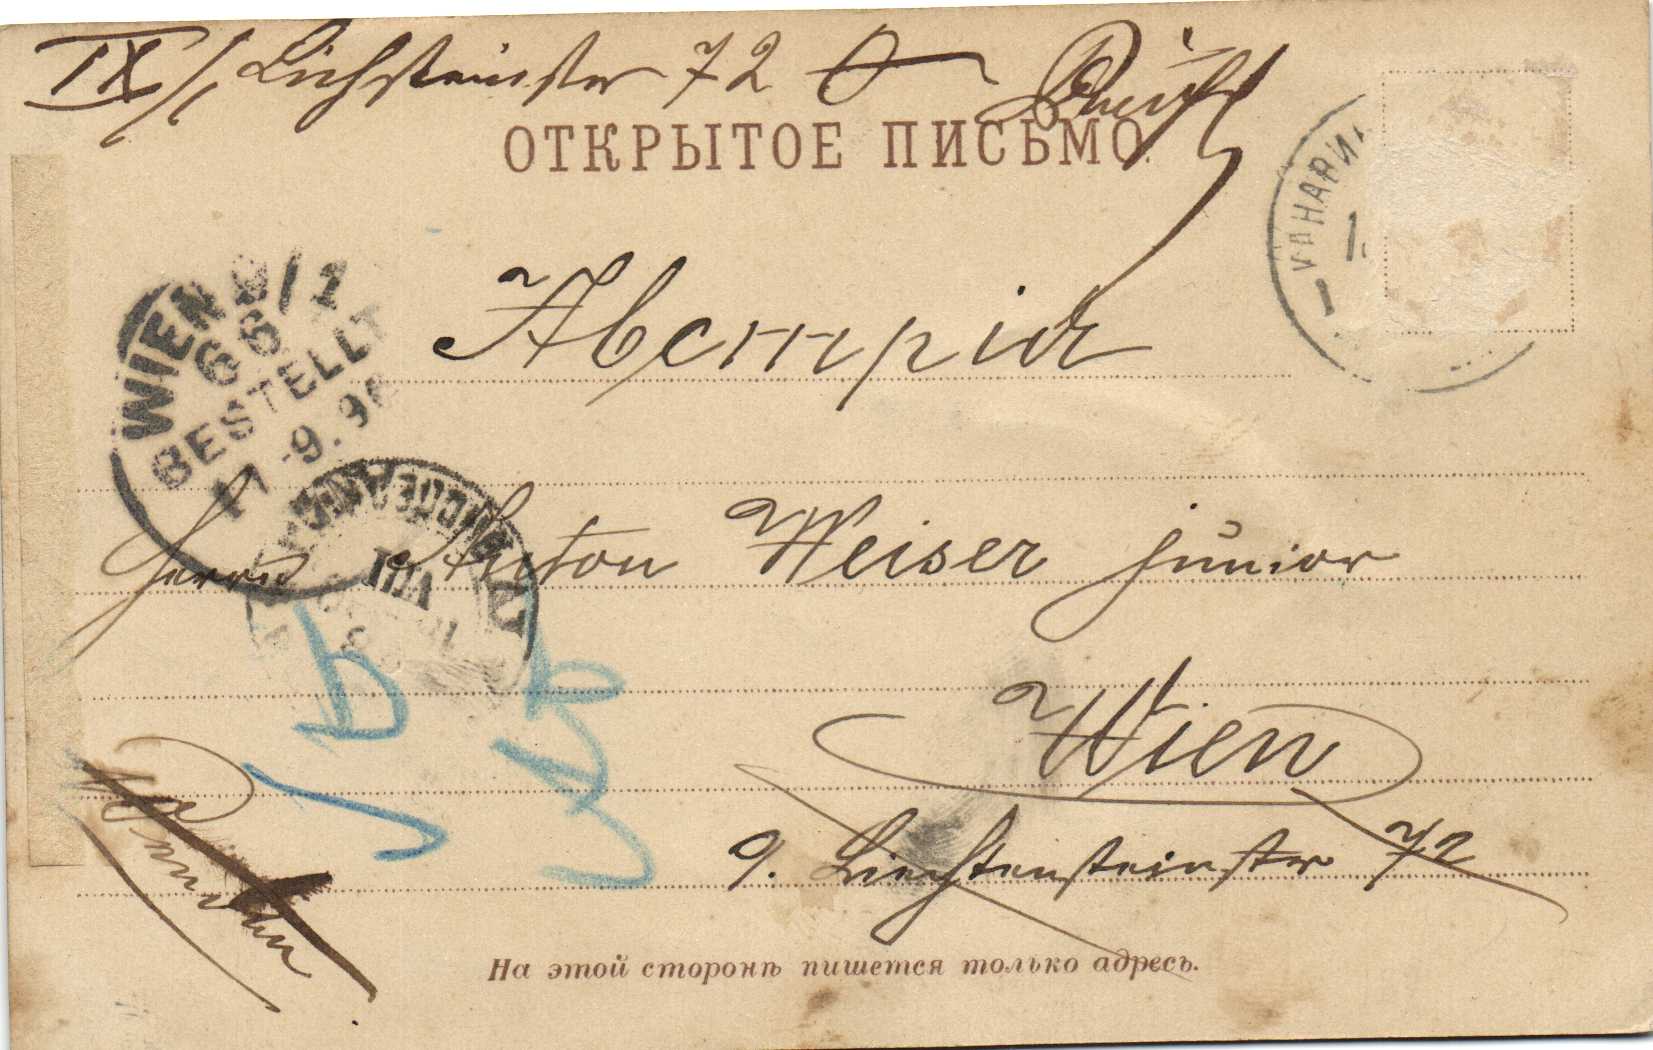 IX/1 Lichsteinstr 72
ОТКРЫТОЕ ПИСЬМО.
WIEN 9/1
66
BESTELLT
17.9.98
Австрія
Herrn Anton Weiser junior
VIII
Wien
9. Liechtensteinstr 72
На этой сторонѣ пишется только адресъ.